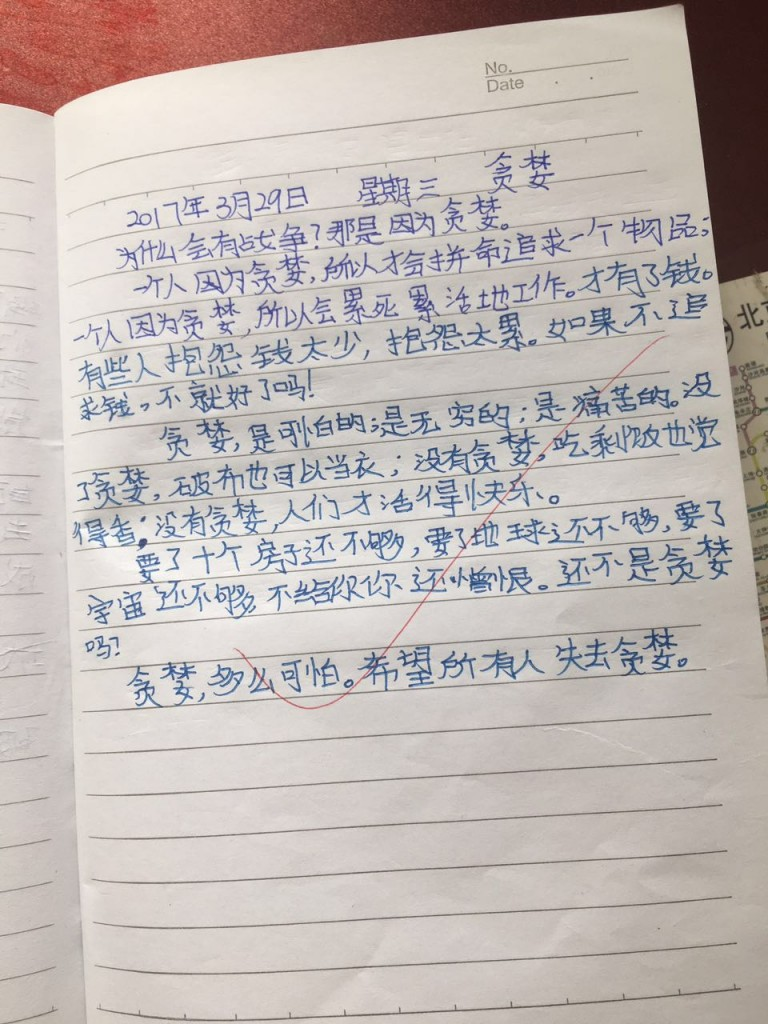 No.
Date
2017年3月29日 星期三 贪婪
为什么会有战争?那是因为贪婪。
一个人因为贪婪,所以才会拼命追求一个物品;
一个人因为贪婪,所以会累死累活地工作。才有了钱。
有些人抱怨钱太少,抱怨太累。如果不追
求钱,不就好了吗!
贪婪,是可怕的;是无穷的;是痛苦的。没
了贪婪,破布也可以当衣;没有贪婪,吃剩饭也觉
得香;没有贪婪,人们才活得快乐。
要了十个房子还不够,要了地球还不够,要了
宇宙还不够 不给你你还憎恨。还不是贪婪
吗?
贪婪,多么可怕。希望所有人失去贪婪。
北